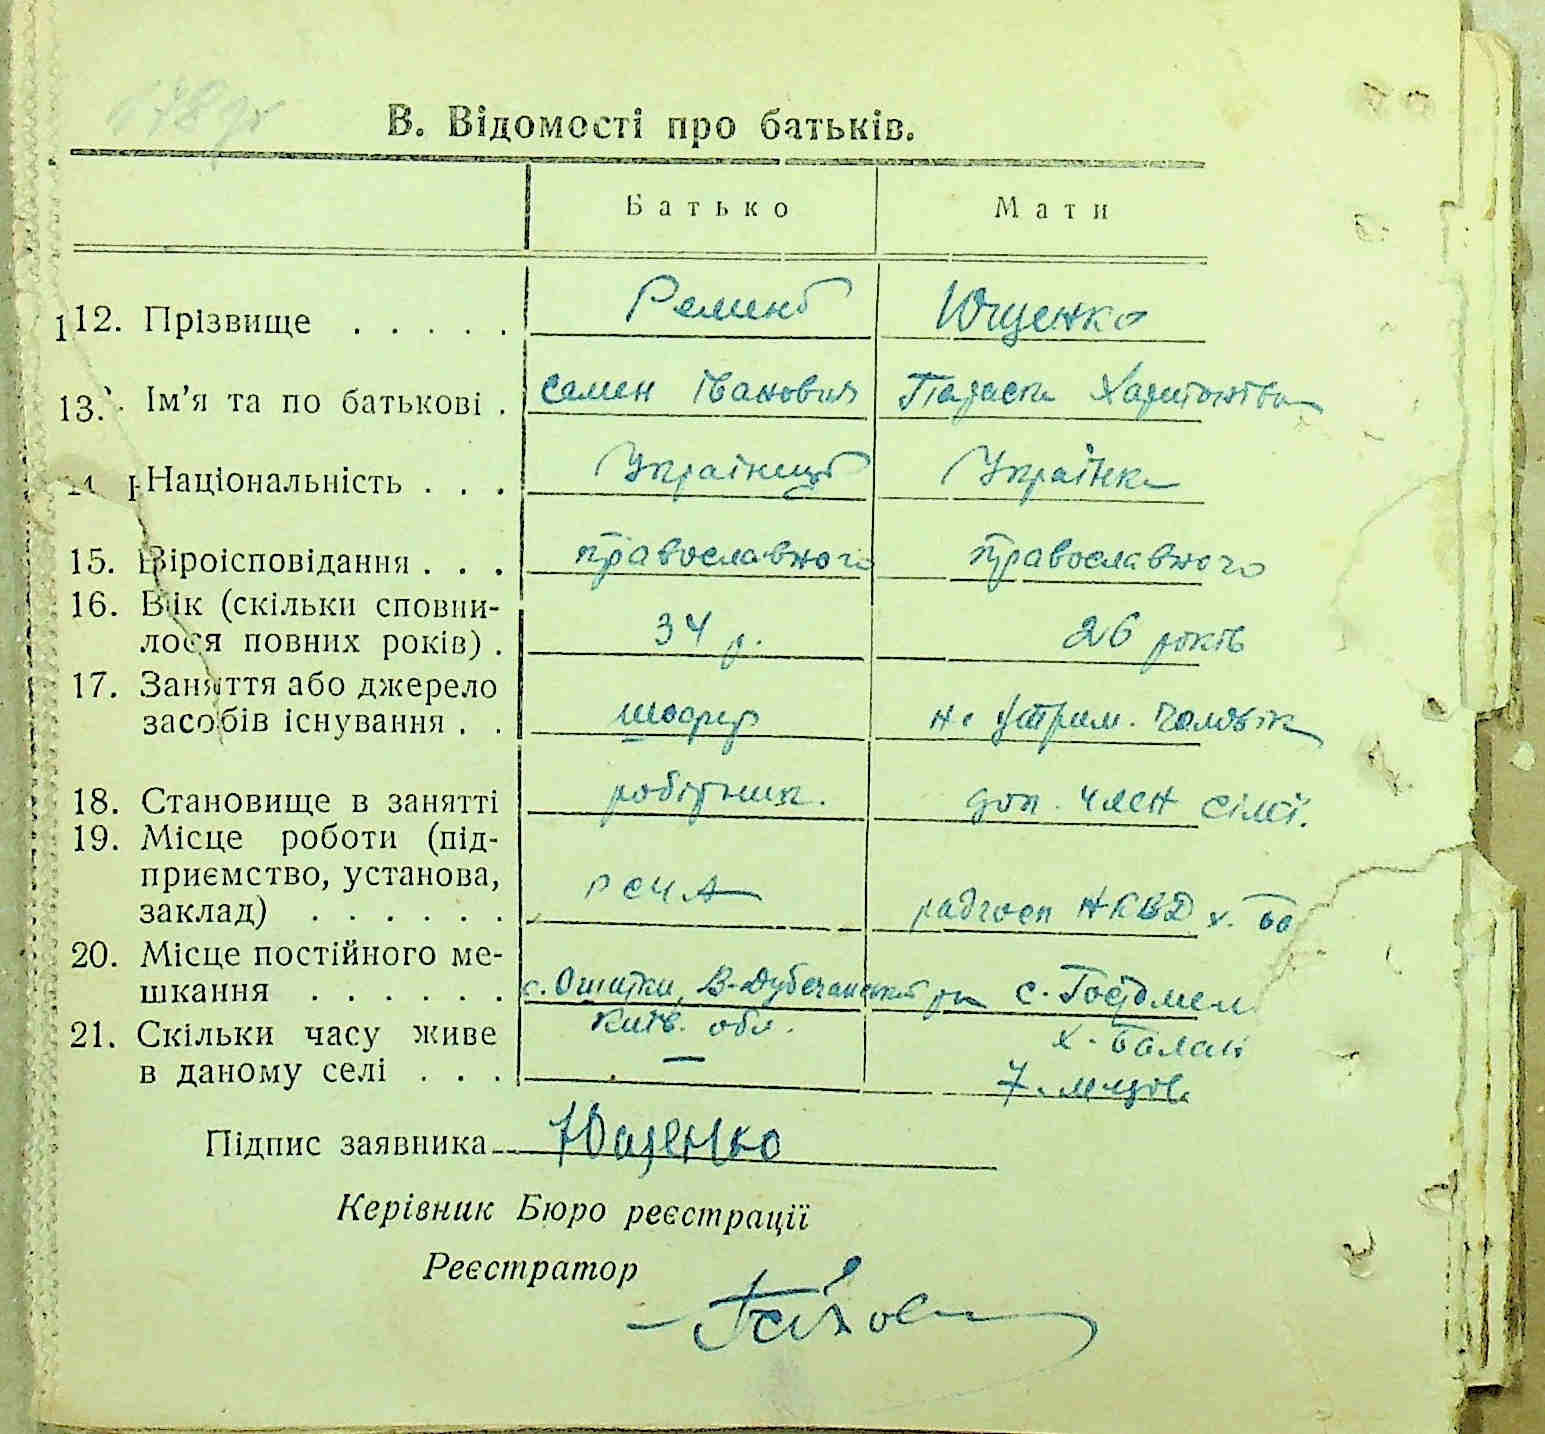 В. Відомості про батьків.
Батько Мати
12. Прізвище . . . . . Реминд Ющенко
13. Ім'я та по батькові . Семен Іванович Параска Харитонівна
Національність . . . Українець Українка
15. Віроісповідання . . . православного православного
16. Вік (скільки сповни-
лося повних років) . 34 р. 26 років
17. Заняття або джерело
засобів існування . . шофер на утрим. чоловік
18. Становище в занятті робітник. доп. член сімї.
19. Місце роботи (під-
приємство, установа,
заклад) . . . . . . РСЧА радгосп НКВД х.
20. Місце постійного ме-
шкання . . . . . . с. Ошитки, В-Дубечанський р-н с. Гостомель
Київ. обл. х.
21. Скільки часу живе
в даному селі . . . — 7. місяц.
Підпис заявника Ющенко
Керівник Бюро реєстрації
Реєстратор